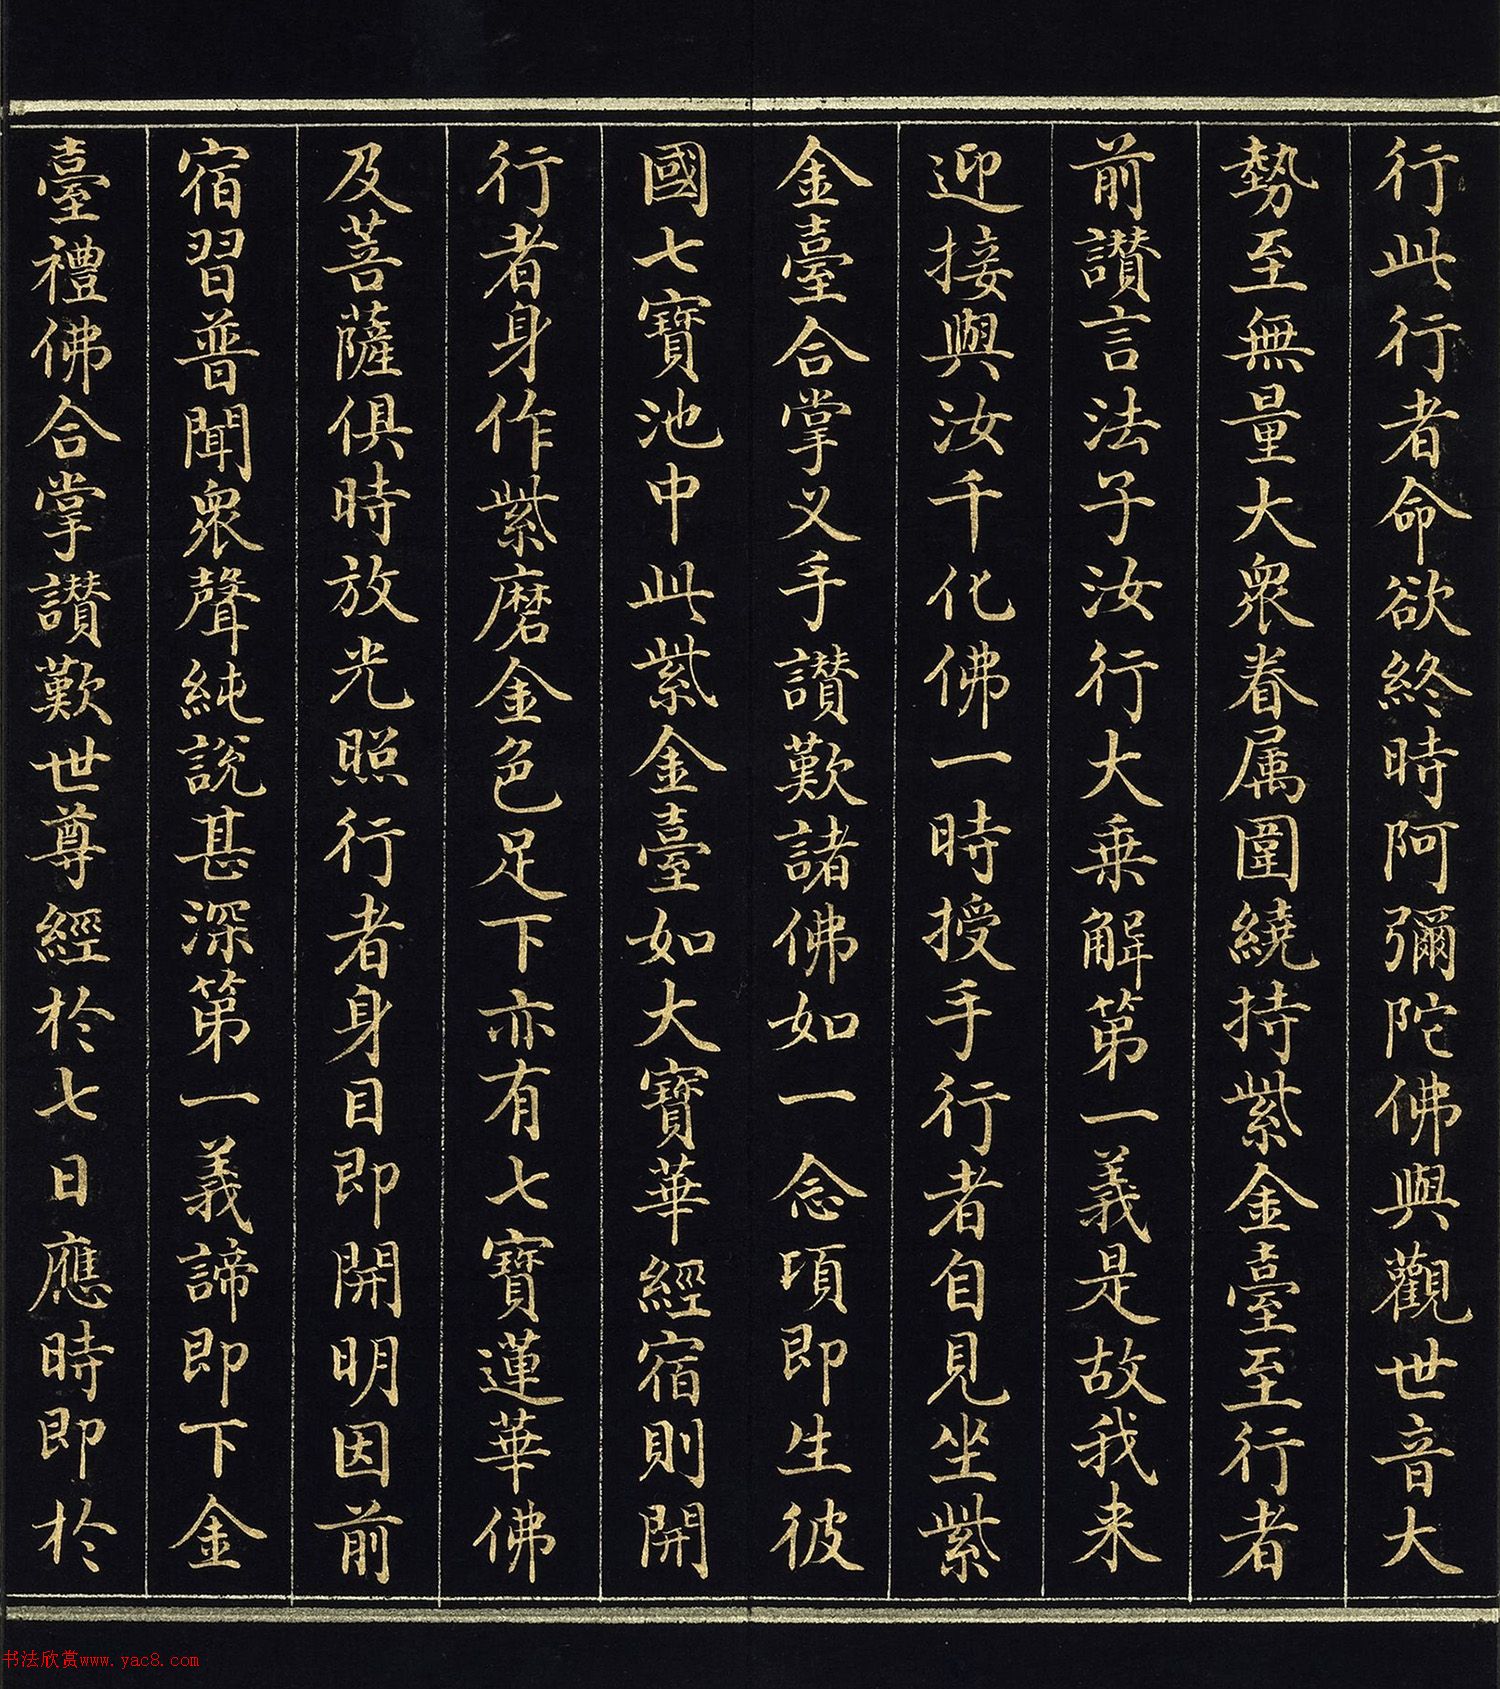 行此行者命欲終時阿彌陀佛與觀世音大
勢至無量大眾眷属圍繞持紫金臺至行者
前讃言法子汝行大乗解第一義是故我来
迎接與汝千化佛一時授手行者自見坐紫
金臺合掌叉手讃歎諸佛如一念頃即生彼
國七寶池中此紫金臺如大寶華經宿則開
行者身作紫磨金色足下亦有七寶蓮華佛
及菩薩俱時放光照行者身目即開明因前
宿習普聞眾聲純說甚深第一義諦即下金
臺禮佛合掌讃歎世尊經於七日應時即於
书法欣赏www.yac8.com